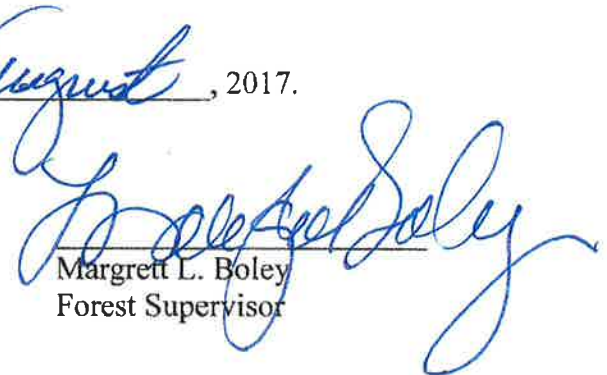 August, 2017.
Margrett L. Boley
Forest Supervisor